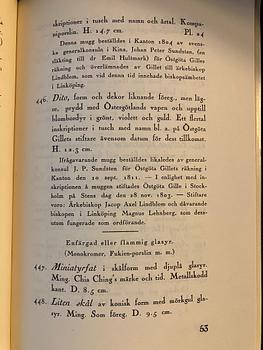 skriptioner i tusch med namn och årtal. Kompa-
niporslin. H. 14.7 cm. Pl. 24
Denna mugg beställdes i Kanton 1804 av svens-
ke generalkonsuln i Kina, Johan Peter Sundsten, (en
släkting till dr Emil Hultmark) för Östgöta Gilles
räkning och överlämnades av Gillet till ärkebiskop
Lindblom, som vid denna tid innehade biskopsämbetet
i Linköping.
446. Dito, form och dekor liknande föreg., men läg-
re, prydd med Östergötlands vapen och upptill
blombordyr i grönt, violett och guld. Ett flertal
inskriptioner i tusch med namn bl. a. på Östgöta
Gillets stiftare ävensom datum för dess tillkomst.
H. 12.3 cm.
Ifrågavarande mugg beställdes likaledes av general-
konsul J. P. Sundsten för Östgöta Gillets räkning i
Kanton den 10 sept. 1811. — I enlighet med in-
skriptionen å muggen stiftades Östgöta Gille i Stock-
holm på Stens dag den 28 nov. 1805. — Stiftare
voro: Ärkebiskop Jacob Axel Lindblom och dåvarande
biskopen i Linköping Magnus Lehnberg, som dess-
utom fungerade som ordförande.
Enfärgad eller flammig glasyr.
(Monokromer, Fukien-porslin m. m.)
447. Miniatyrfat i skålform med djupblå glasyr.
Ming. Chia Ching's märke och tid. Metallskodd
kant. D. 8.5 cm.
448. Liten skål av konisk form med mörkgul gla-
syr. Ming. Som föreg. D. 9.5 cm.
53